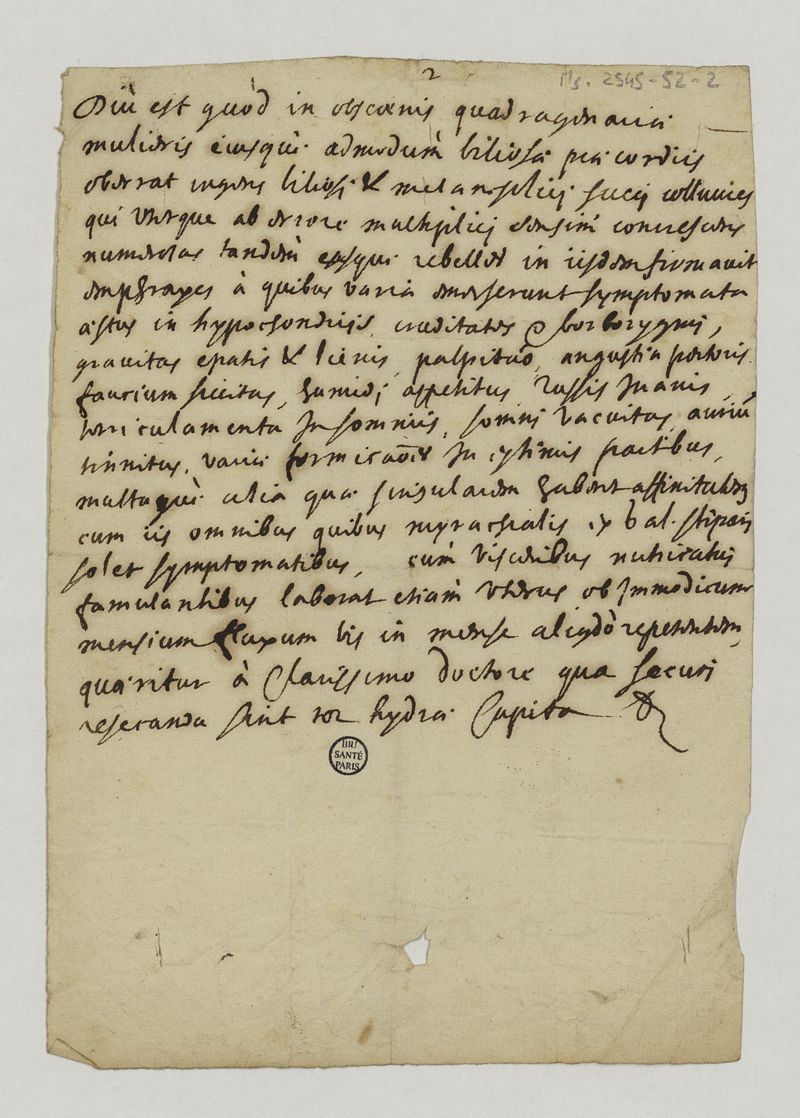 2
Ms. 2545-52-2
Diù est quòd in obscœnis quadragenariæ
mulieris eiusquè admodùm biliosæ præcordiis
oberrat ingens biliosi & melancholici succi colluvies
qui uterque ab errore multiplici sensim concrescens
numerosas tandèm easque rebelles in iisdem firmavit
emphraxes à quibus varia emerserunt symptomata
æstus in hypochondriis, cruditates & borborygmi,
gravitas epatis & lienis, palpitaō, angustia pectoris
faucium siccitas, humidi appetitus, tussis inanis,
terriculamenta in somniis, somni vacuitas, auriū
tinnitus, variæ formicaōes in extimis partibus,
multaquè alia quæ singularem habent affinitatem
cum iis omnibus quibus myrachialis stipari
solet symptomatibus, cùm visceribus nutricatus
famulantibus laborat etiàm uterus ob immodicum
mensium fluxum bis in mense aliqdō repetentem,
quæritur à Clarissimo doctore qua securi
resecanda sint tot hydræ capita &
BIU
SANTÉ
PARIS